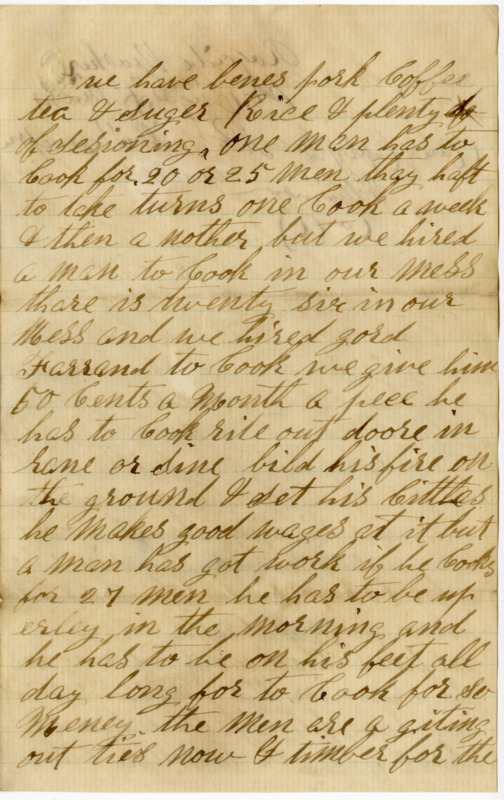 we have benes pork Coffee
tea & suger Rice & plenty
of desioning, one man has to
Cook for 20 or 25 men thay haft
to take turns one Cook a week
& then a nother, but we hired
a man to Cook in our mess
thare is twenty six in our
Mess and we hired gord
Farrand to Cook we give him
50 Cents a Month a peec he
has to Cook rite out doore in
rane or sine bild his fire on
the ground & set his Cittles
he makes good wages at it but
a man has got work if he Cooks
for 27 men he has to be up
erley in the morning and
he has to be on his feet all
day long for to Cook for so
Meney. the men are a giting
out ties now & timber for the